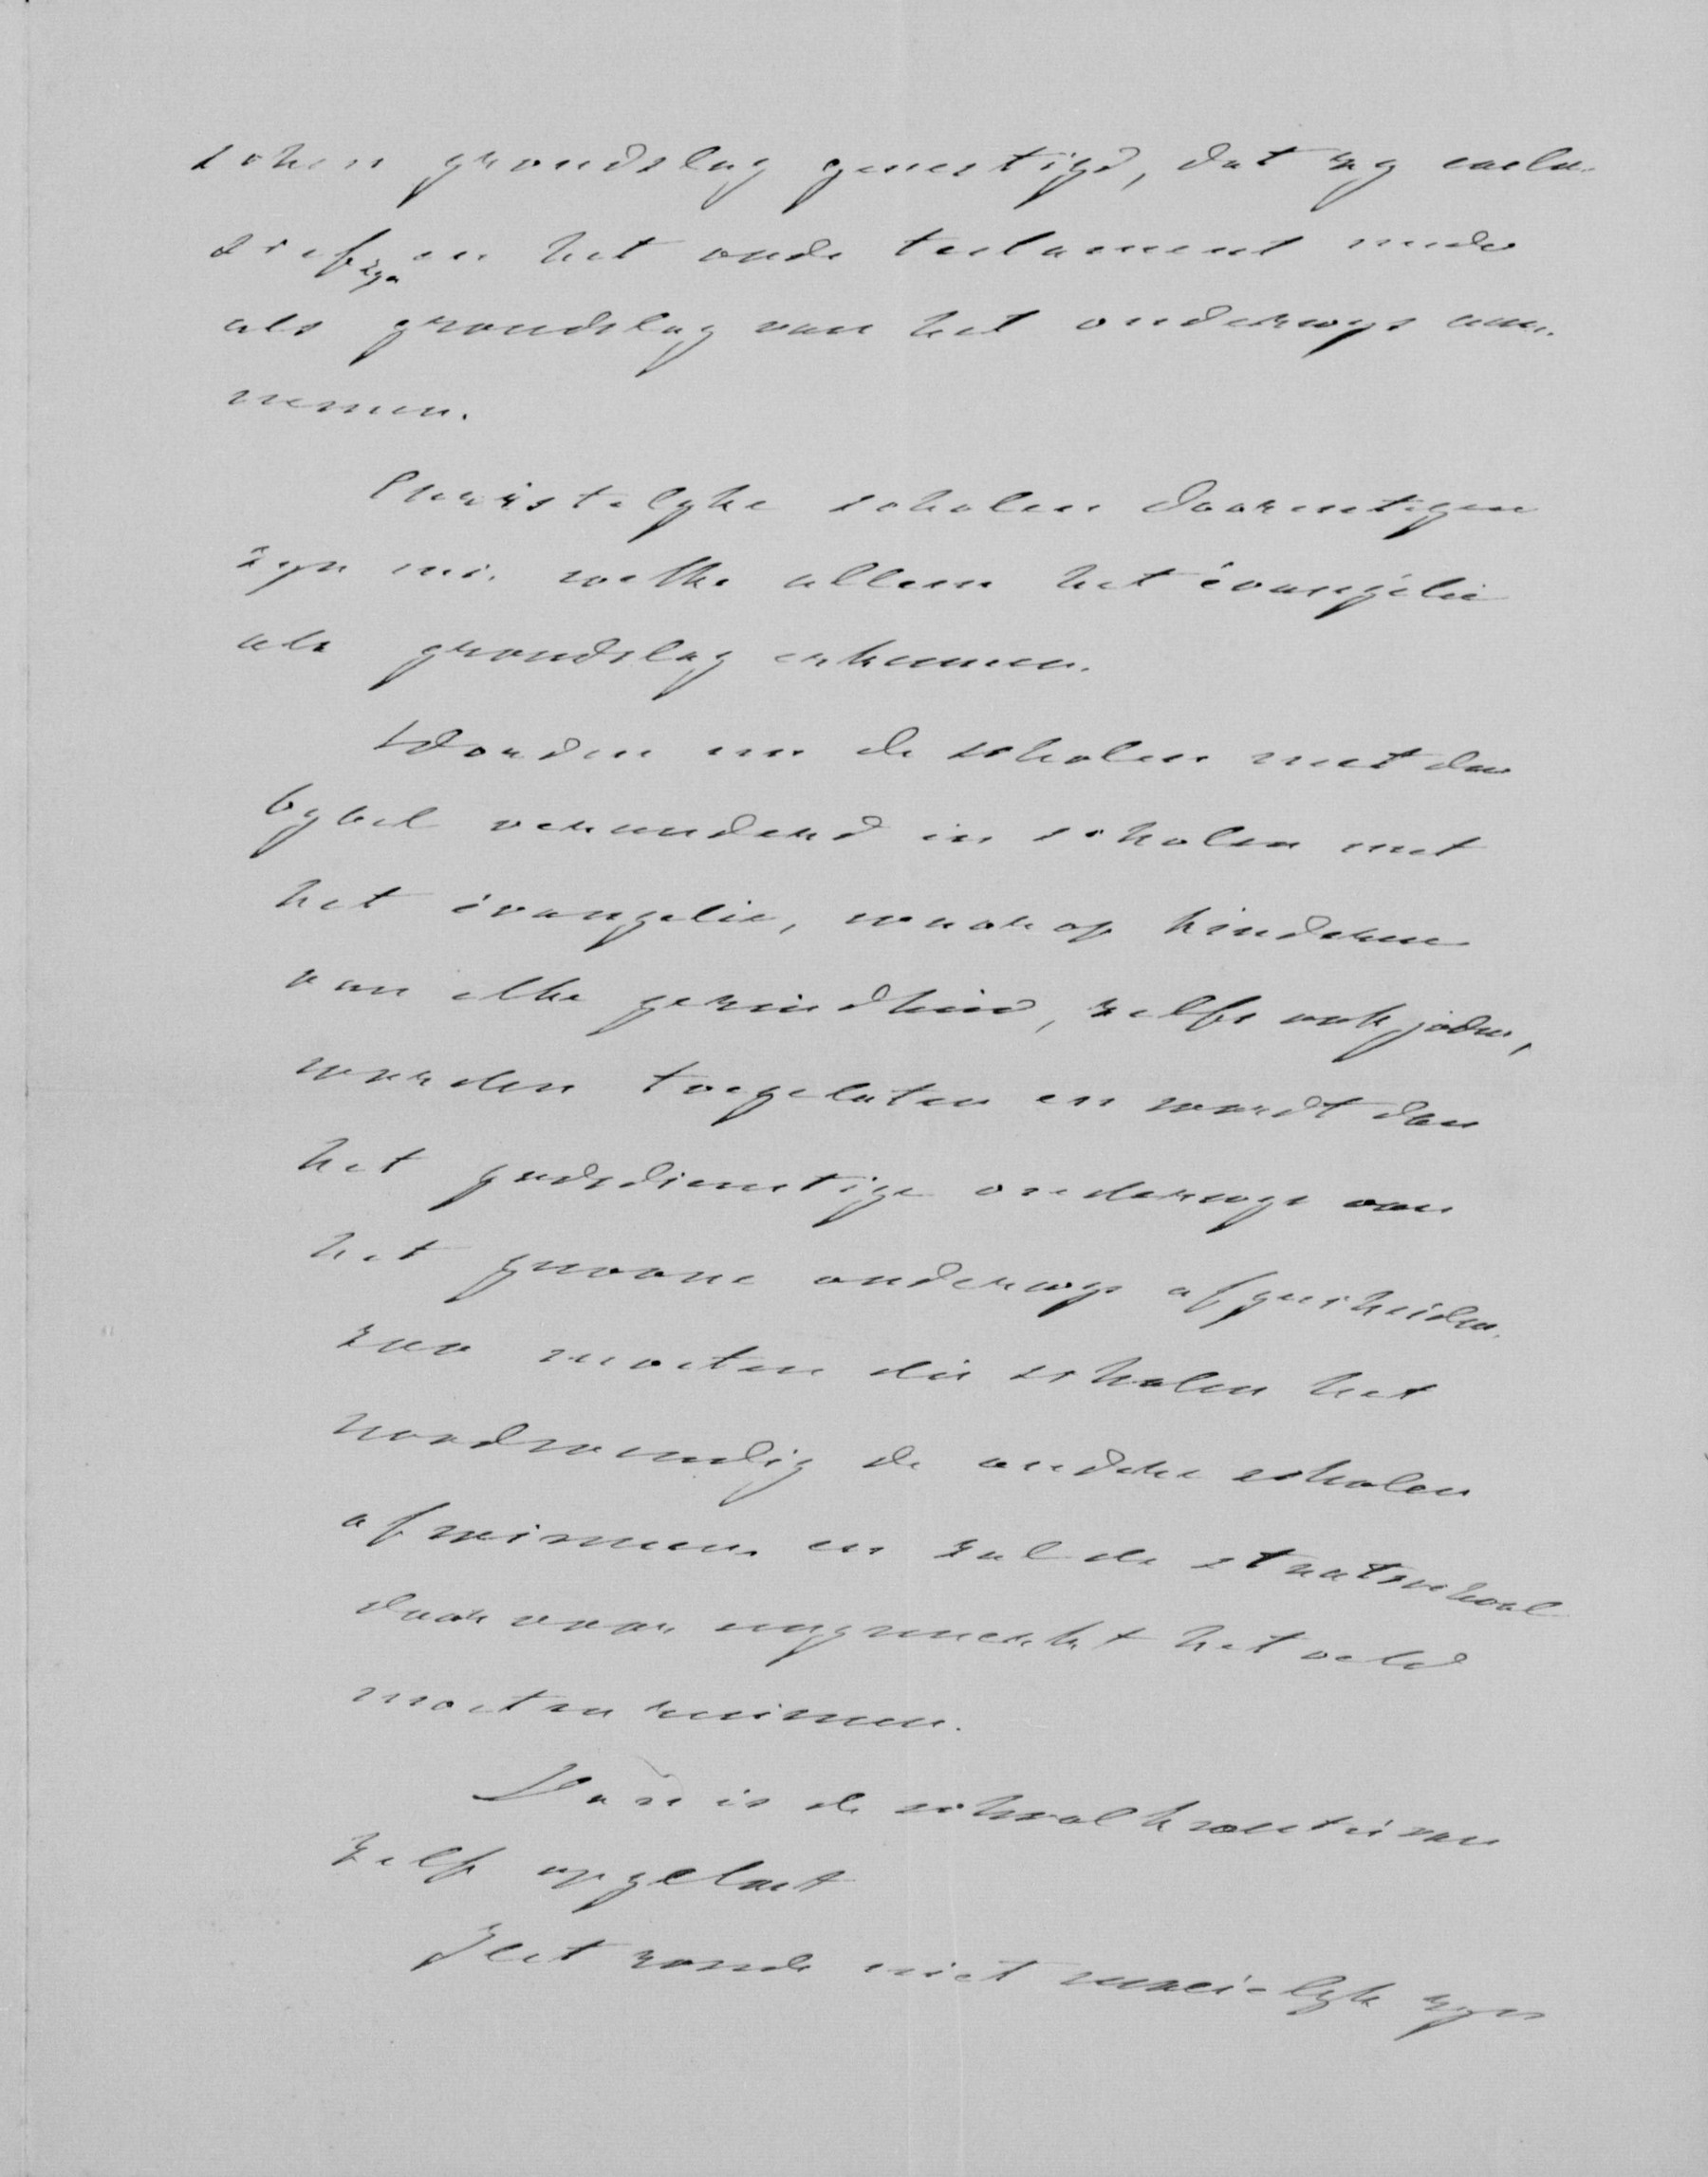 schen grondslag gevestigd, dat zy exclu-
sief zyn en het oude testament mede
als grondslag van het onderwys aan-
nemen.
Christelyke scholen daarentegen
zyn m.i. welke alleen het evangelie
als grondslag erkennen.
Worden nu de scholen met den
bybel veranderd in scholen met
het evangelie, waarop kinderen
van elke gezindheid, zelfs ook joden,
worden toegelaten en wordt dan
het godsdienstige onderwys van
het gewone onderwys afgescheiden.
zoo moeten die scholen het
noodwendig de andere scholen
afwinnen en zal de staatsschool
daarvoor ongemerkt het veld
moeten ruimen.
Dan is de schoolkwestie van
zelf opgelost
Het zoude niet moeielyk zyn